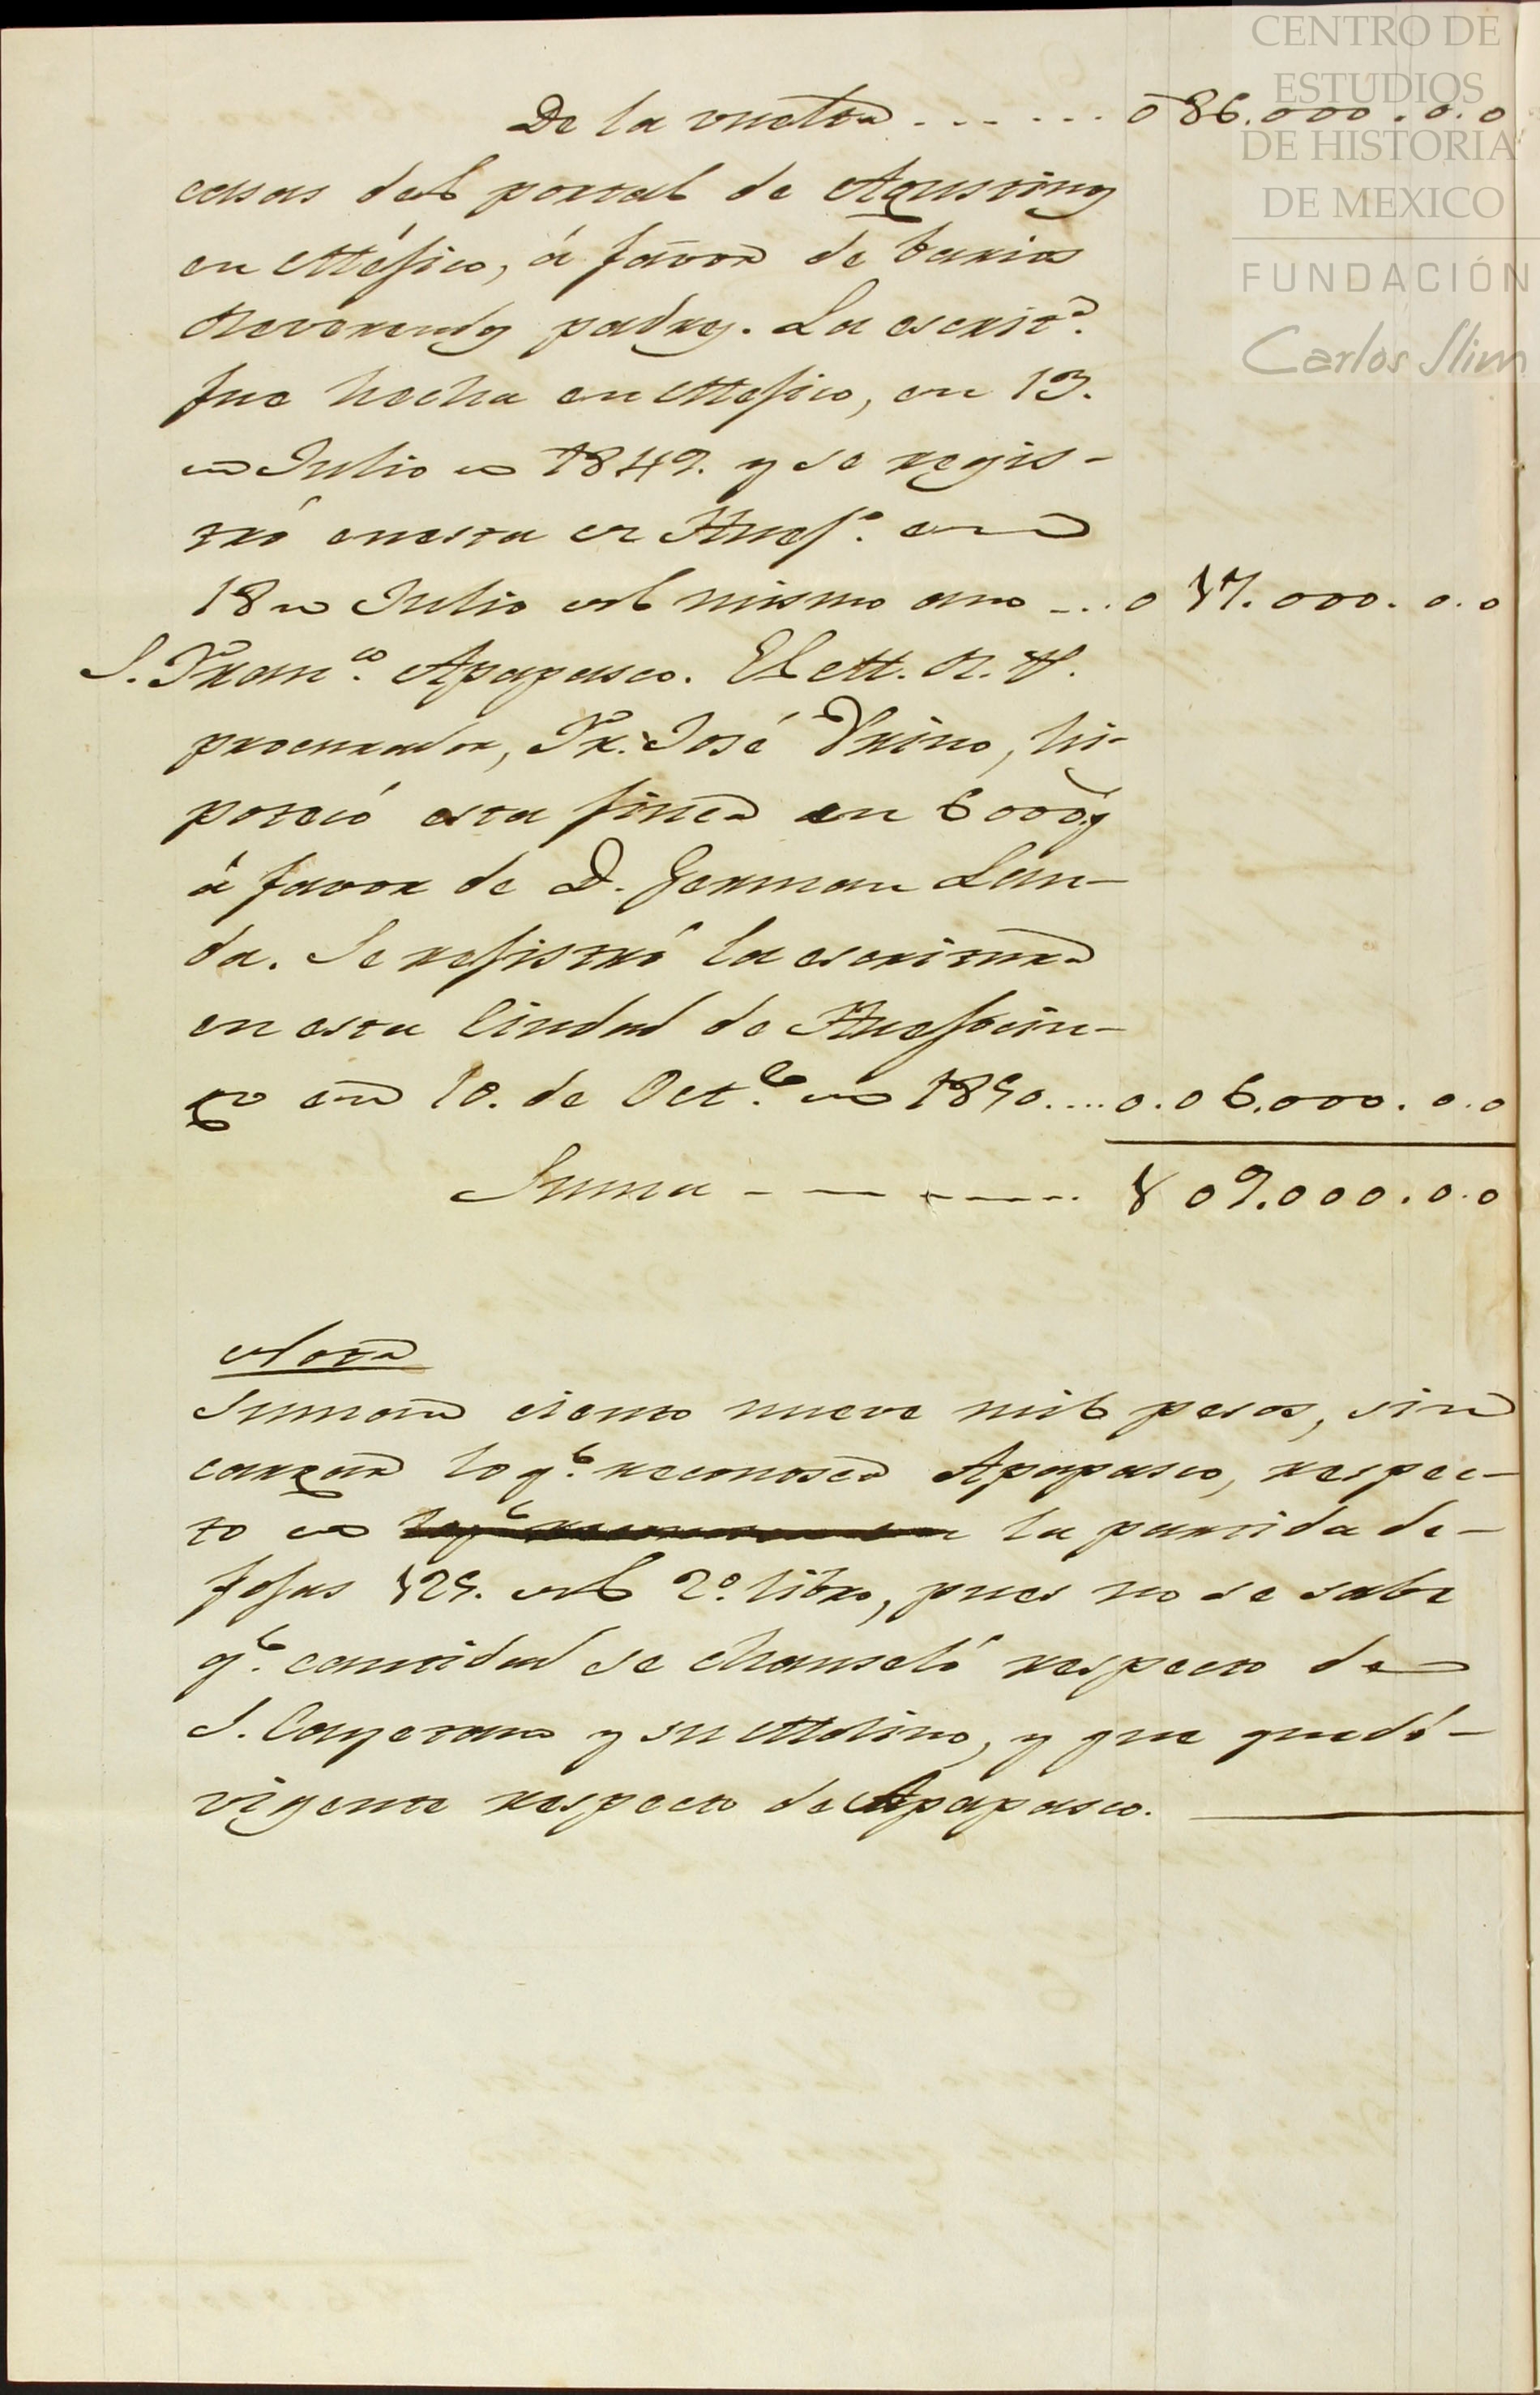 CENTRO DE
ESTUDIOS
DE HISTORIA
DE MEXICO
FUNDACIÓN
Carlos Slim
De la vuelta . . . . . . 0 86.000.0.0
casas del portal de Agustinos
en Méjico, á favor de barios
Reverendos padres. La escrit.a
fue hecha en Mejico, en 13.
de Julio de 1849. y se regis-
tró en esta de Huej.o en
18 de Julio del mismo ano - . . 0 17.000.0.0
S. Fran.co Apapasco. El M. R. P.
procurador, Fr. José Pino, hi-
potecó esta finca en 6000 ps
á favor de D. German Lan-
da. Se rejistró la escritura
en esta Ciudad de Huejocin-
go en 10. de Oct.e de 1850 . . . . 0.0 6.000.0.0
Suma - - - - - - 1 09.000.0.0
Nota
Suman ciento nueve mil pesos, sin
cargar lo q.e reconosca Apapasco, respec-
to de la partida de-
fojas 125. del 2.o libro, pues no se sabe
q.e cantidad se chanseló respecto de
S. Cayetano y su Molino, y que quedó-
vigente respecto de Apapasco.